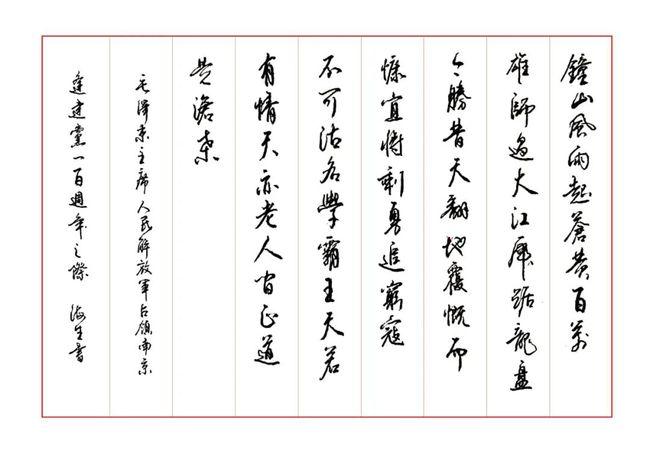 鐘山風雨起蒼黃百萬
雄師過大江虎踞龍盤
今勝昔天翻地覆慨而
慷宜將剩勇追窮寇
不可沽名學霸王天若
有情天亦老人間正道
是滄桑
毛澤東主席人民解放軍占領南京
逢建黨一百週年之際 海生書